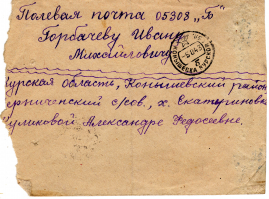 Полевая почта 05303 "Б"
Горбачеву Ивану
Михайловичу
Курская область, Конышевский район
с/сов., х. Екатериновка
Куликовой Александре Федосеевне.